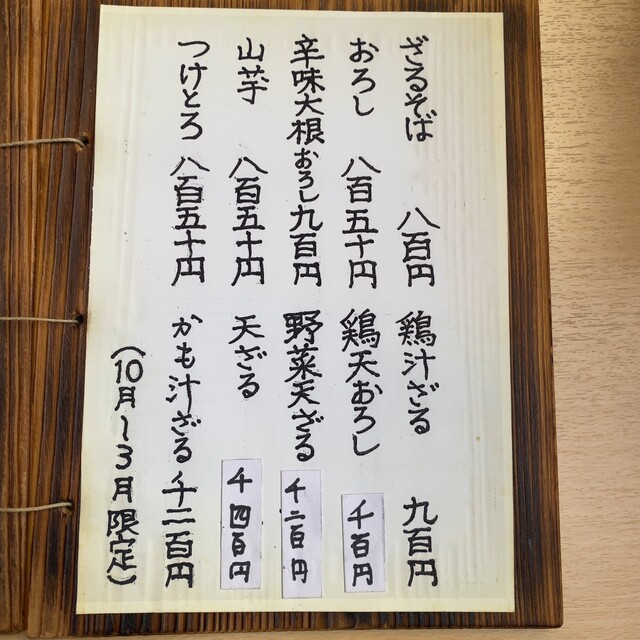 ざるそば 八百円
おろし 八百五十円
辛味大根おろし 九百円
山芋 八百五十円
つけとろ 八百五十円
鶏汁ざる 九百円
鶏天おろし 千百円
野菜天ざる 千二百円
天ざる 千四百円
かも汁ざる 千二百円
(10月～3月限定)